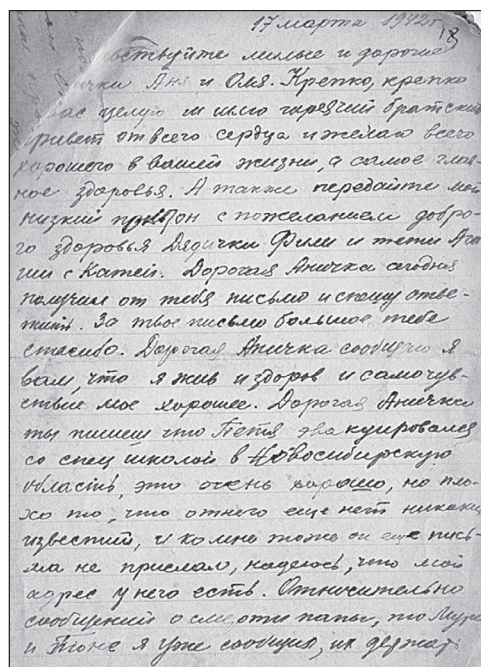 17 марта 1942г.
вствуйте милые и дорогие
Аня и Оля. Крепко, крепко
вас целую и шлю горячий братский
привет от всего сердца и желаю всего
хорошего в вашей жизни, а самое глав-
ное здоровья. А также передайте мой
низкий поклон с пожеланием добро-
го здоровья Дядички Фили и тети
с Катей. Дорогая Аничка сегодня
получил от тебя письмо и спешу отве-
тить. За твое письмо большое тебе
спасибо. Дорогая Аничка сообщаю я
вам, что я жив и здоров и самочув-
ствие мое хорошее. Дорогая Аничка
ты пишеш что Петя эвакуировался
со спец школой в Новосибирскую
область, это очень хорошо, но пло-
хо то, что от него еще нет никаких
известий, и ко мне тоже он еще пись-
ма не прислал, надеюсь, что мой
адрес у него есть. Относительно
сообщений о смерти папы, то
и Тоне я уже сообщил, их держать